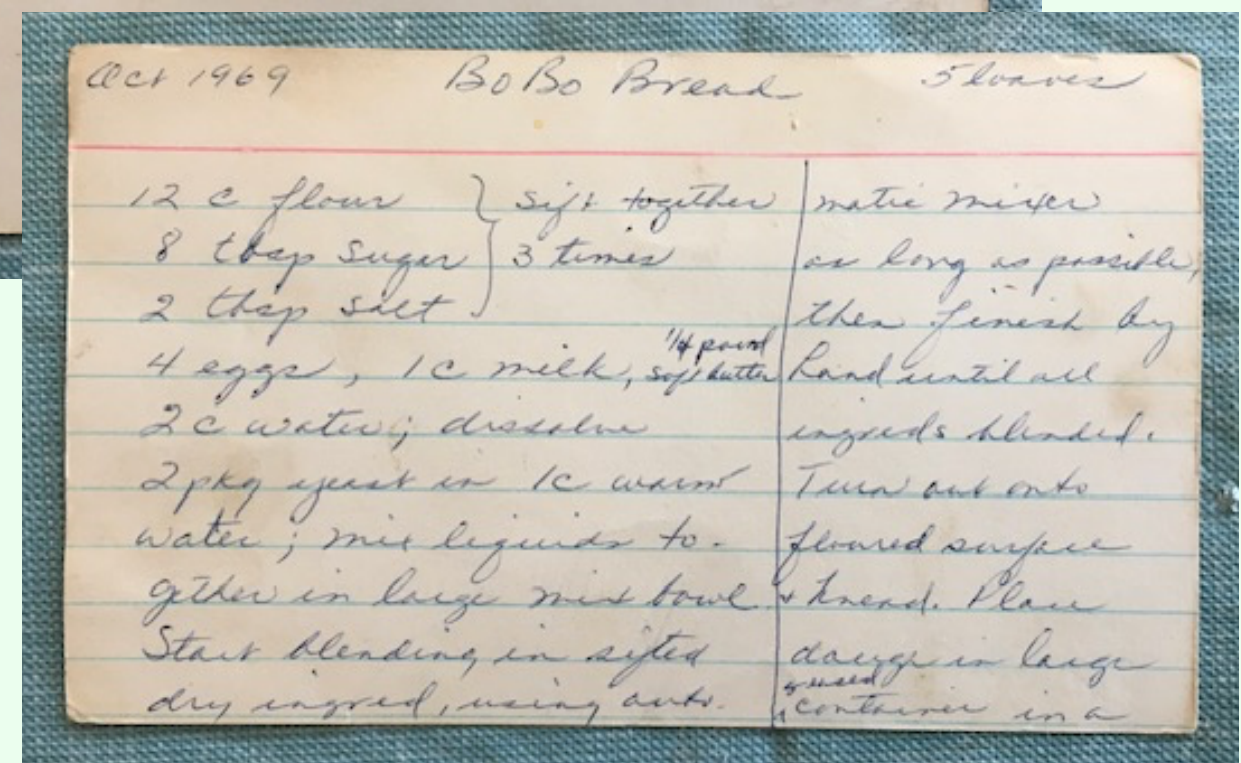 Oct 1969 BoBo Bread 5 loaves
12 c flour } sift together
8 tbsp Sugar } 3 times
2 tbsp salt
1/4 pound
4 eggs, 1c milk, soft butter
2c water; dissolve
2 pkg yeast in 1c warm
water; mix liquids to-
gether in large mix bowl.
Start blending in sifted
dry ingred, using auto-
matic mixer
as long as possible,
then finish by
hand until all
ingreds blended.
Turn out onto
floured surface
& knead. Place
dough in large
greased
container in a